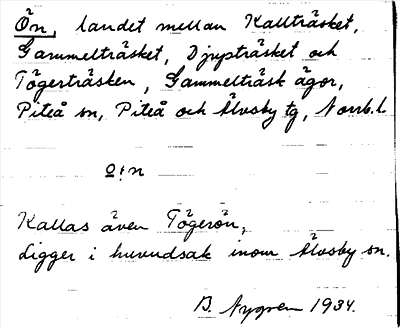 Ön, landet mellan Kallträsket,
Gammelträsket, Djupträsket och
Tögerträsken, Gammelträsk ägor,
Piteå sn, Piteå och Älvsby tg, Norrb. l.
ö:n
Kallas även Tögerön,
Ligger i huvudsak inom Älvsby sn.
B. Nygren 1934.